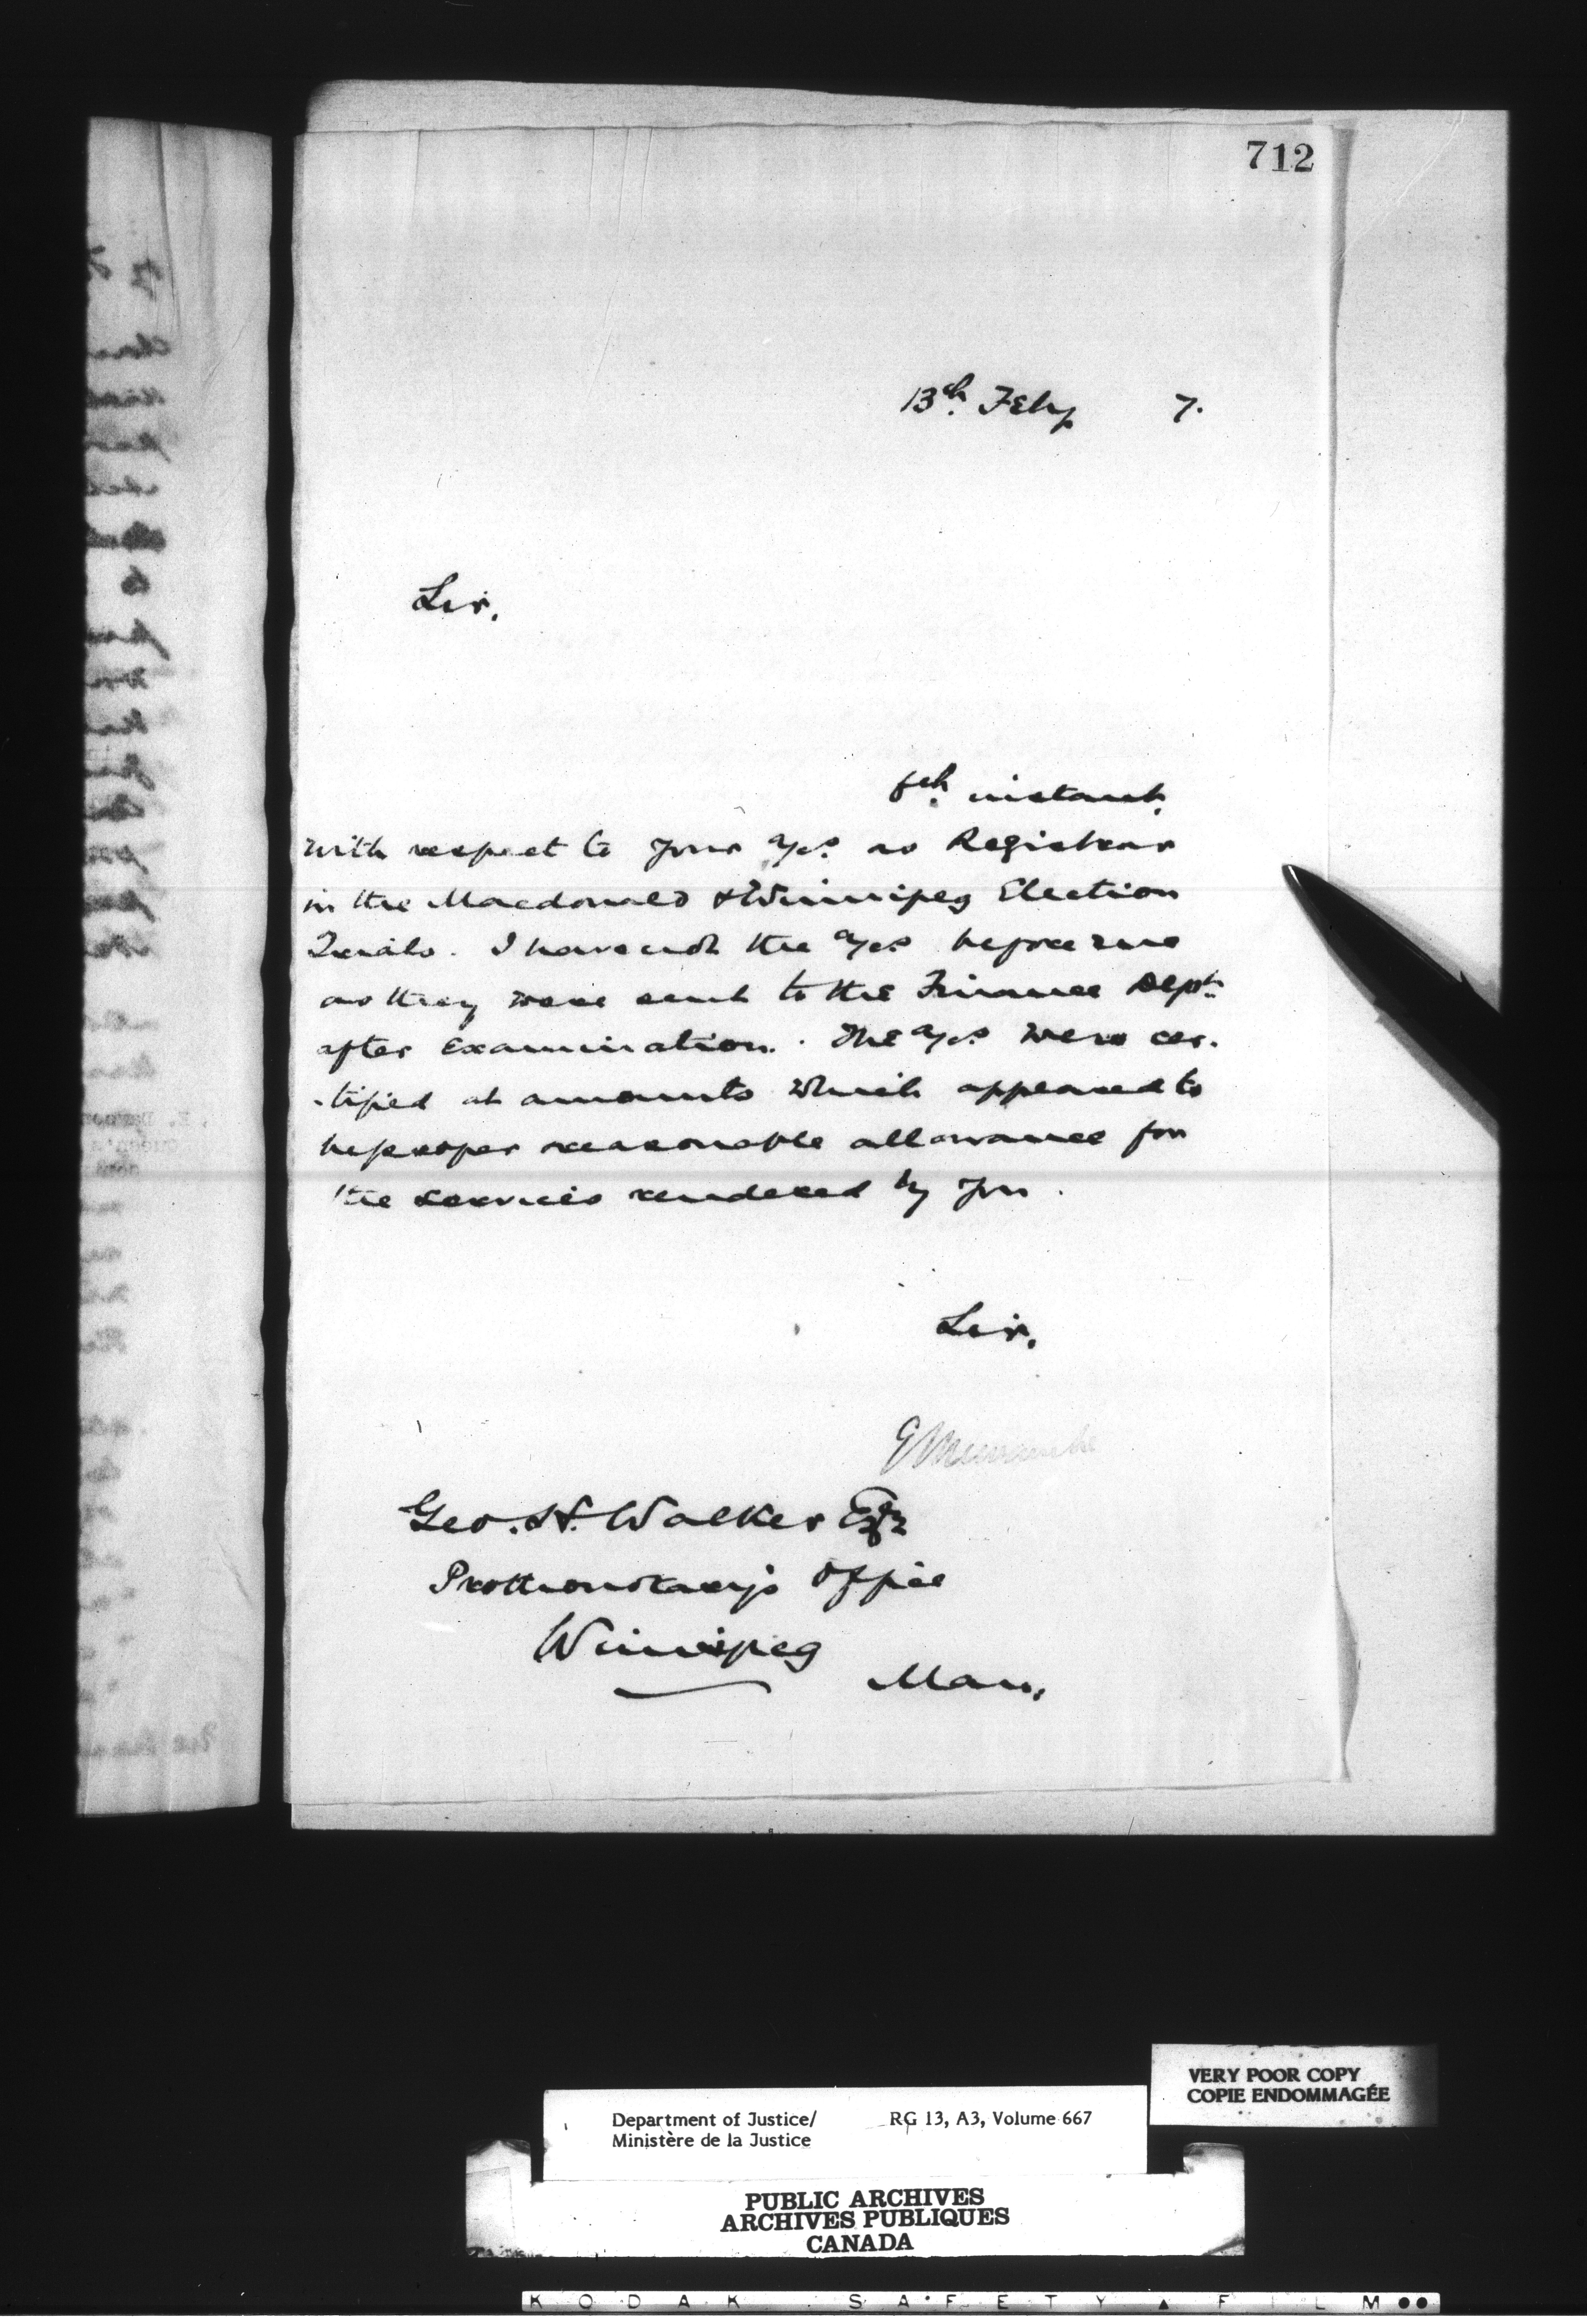 712
13th Feby 7.
Sir,
6th instant,
with respect to your a/cs. as Registrar
in the Macdonald & Winnipeg Election
Trials. I have not the a/cs before me
as they were sent to the Finance Dept.
after Examination. The a/cs were cer-
-tified at amounts which appeared to
be proper reasonable allowance for
the services rendered by you.
Sir,
Geo. H. Walker Esq
Prothonotary's Office
Winnipeg
Man.
VERY POOR COPY
COPIE ENDOMMAGÉE
Department of Justice/ RG 13, A3, Volume 667
Ministère de la Justice
PUBLIC ARCHIVES
ARCHIVES PUBLIQUES
CANADA
KODAK SAFETY FILM